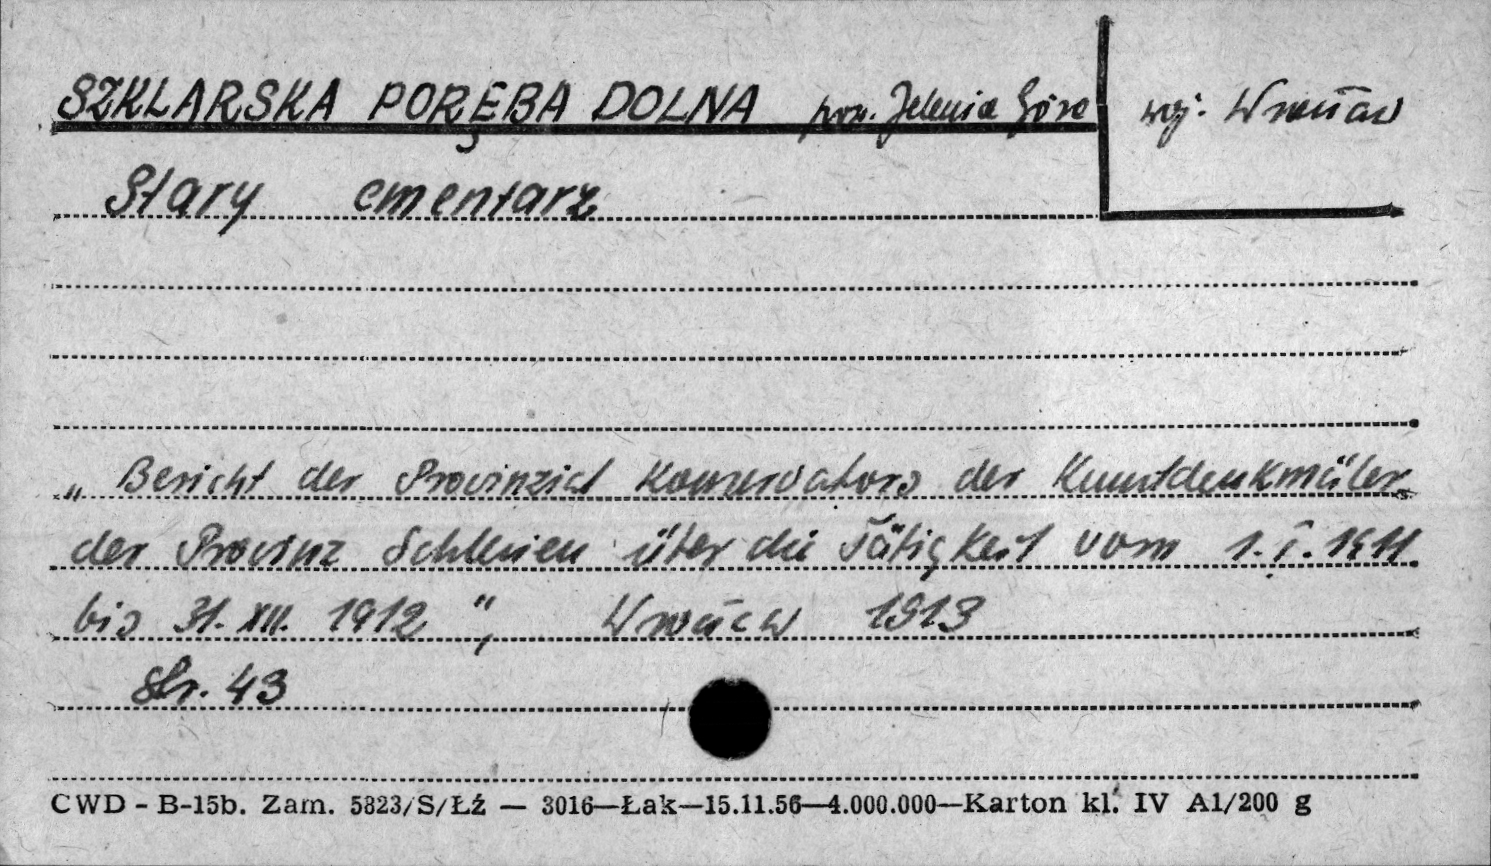 SZKLARSKA PORĘBA DOLNA pow. Jelenia Góra woj. Wrocław
Stary cmentarz
„Bericht der Provinzial Konservators der Kunstdenkmäler
der Provinz Schlesien über die Tätigkeit vom 1.I.1911
bis 31.XII.1912", Wrocław 1913
str. 43
CWD - B-15b. Zam. 5823/S/Łź — 3016—Łak—15.11.56—4.000.000—Karton kl. IV A1/200 g